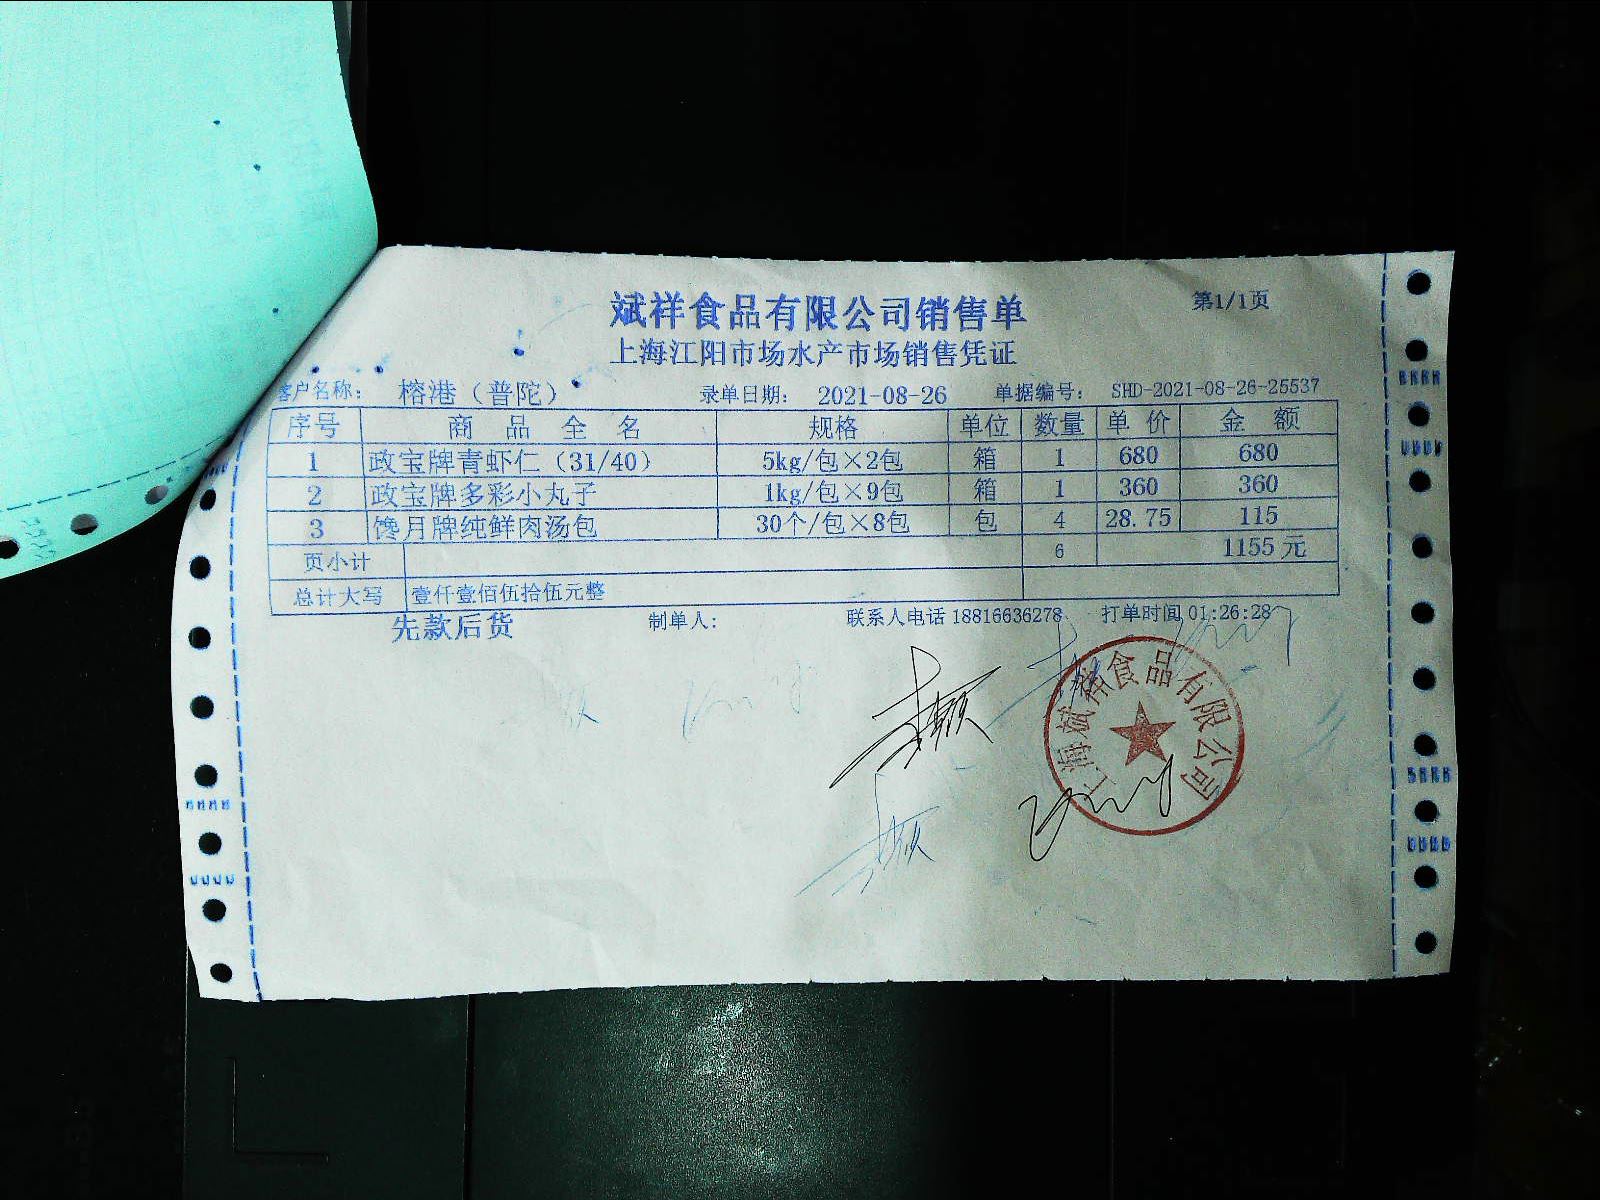 斌祥食品有限公司销售单 第1/1页
上海江阳市场水产市场销售凭证
客户名称: 榕港（普陀） 录单日期: 2021-08-26 单据编号: SHD-2021-08-26-25537
序号 商 品 全 名 规格 单位 数量 单 价 金 额
1 政宝牌青虾仁（31/40） 5kg/包×2包 箱 1 680 680
2 政宝牌多彩小丸子 1kg/包×9包 箱 1 360 360
3 馋月牌纯鲜肉汤包 30个/包×8包 包 4 28.75 115
页小计 6 1155 元
总计大写 壹仟壹佰伍拾伍元整
先款后货 制单人: 联系人电话 18816636278 打单时间 01:26:28
上海斌祥食品有限公司